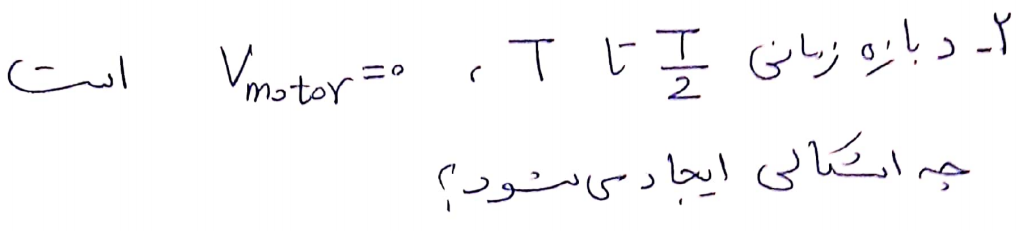 ۲- د بازه زمانی T/2 تا T ، Vmotor=0 است
چه اشکالی ایجاد می‌شود؟